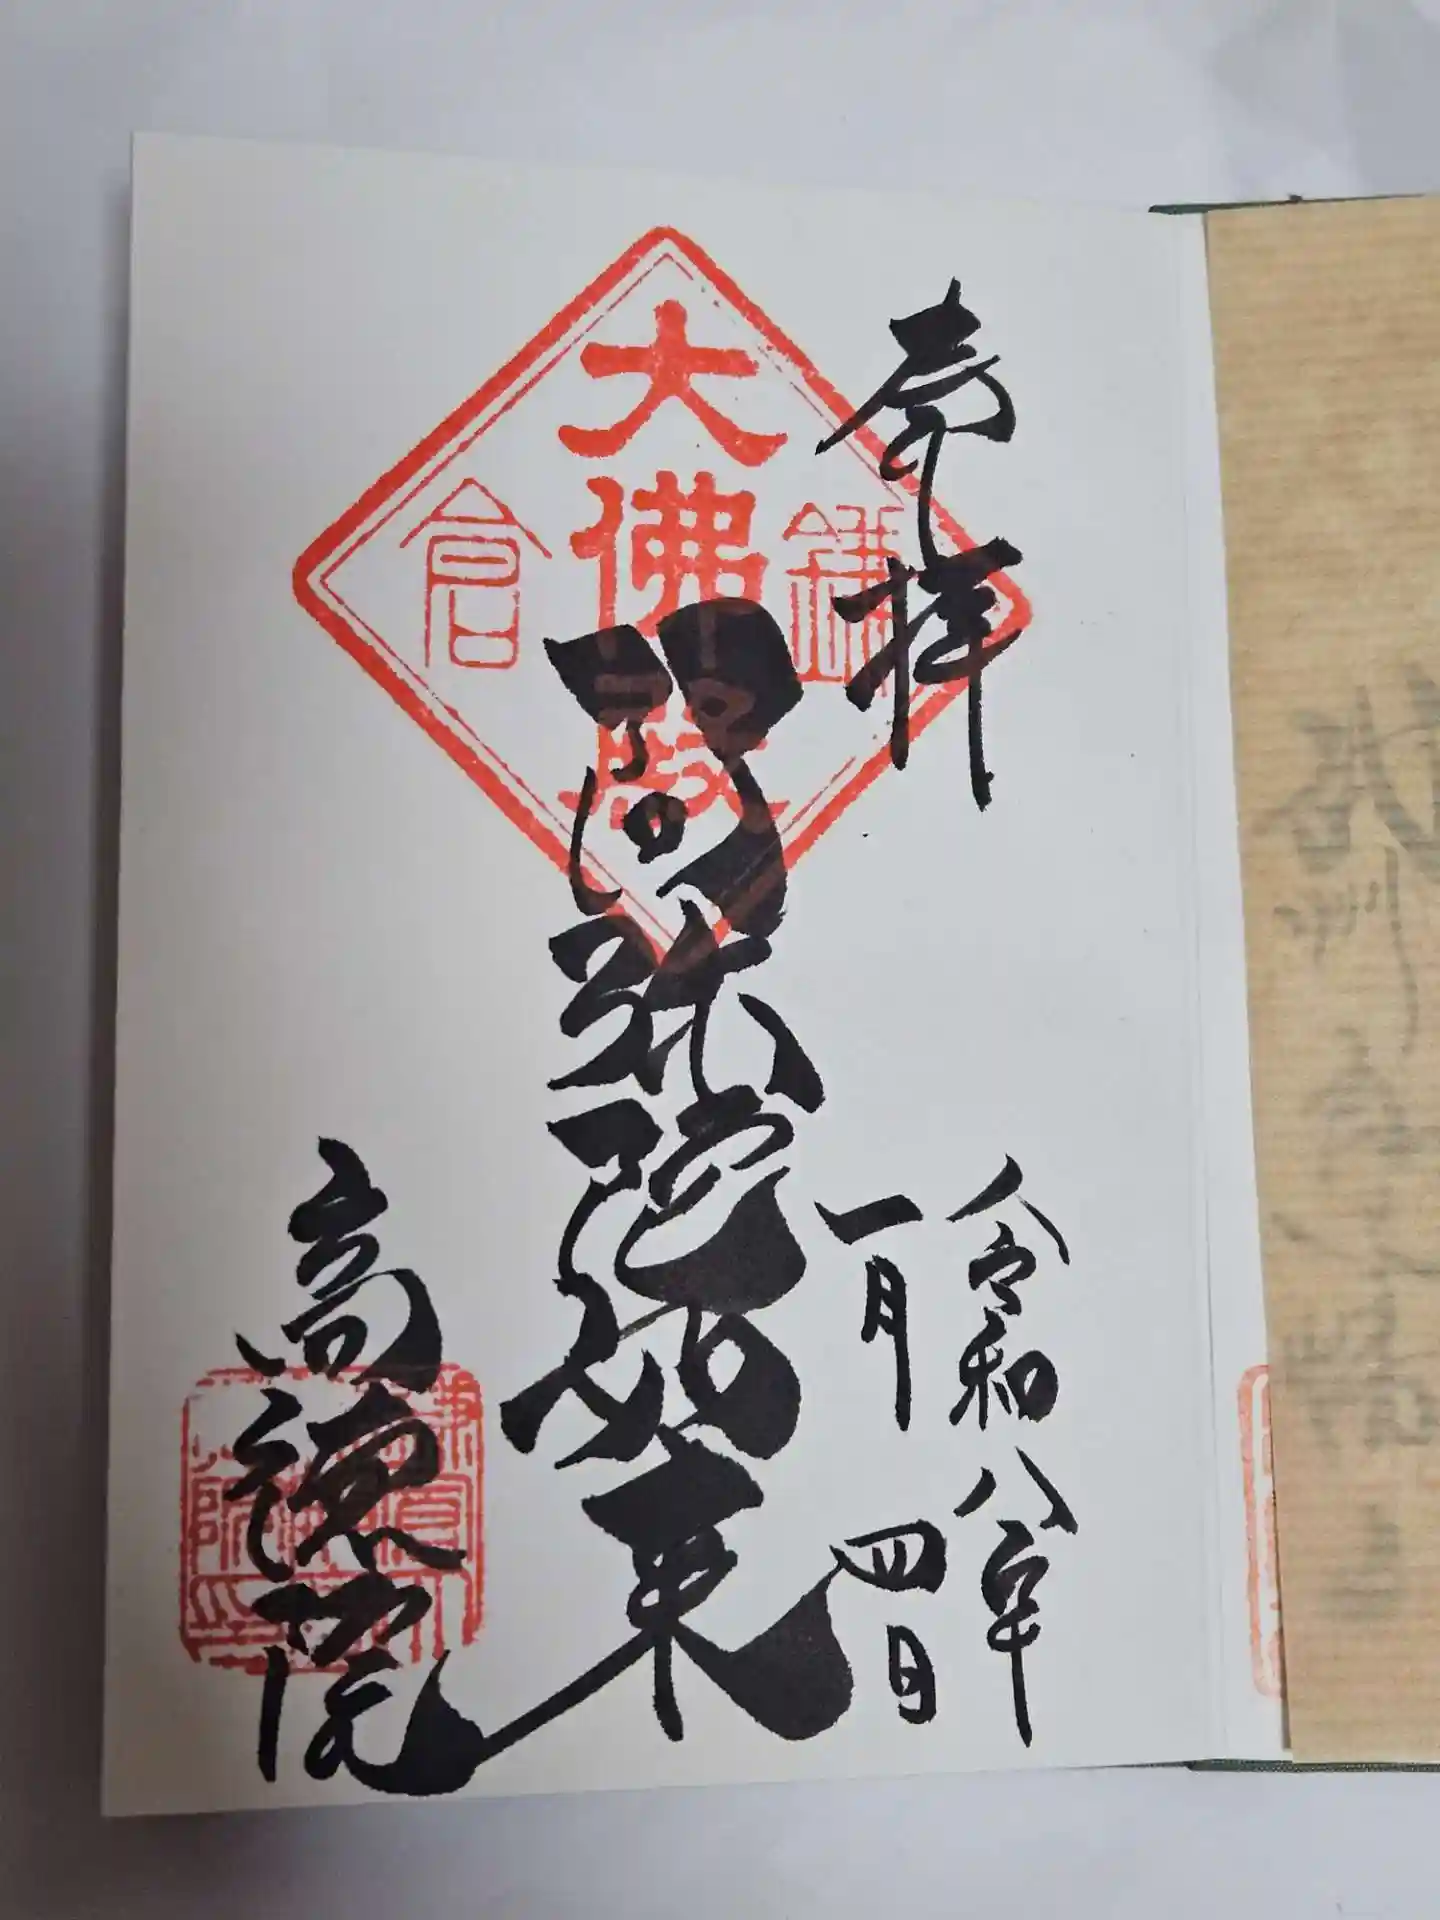 奉拝
令和八年
一月四日
鎌
大佛殿
倉
阿弥陀如来
高徳院